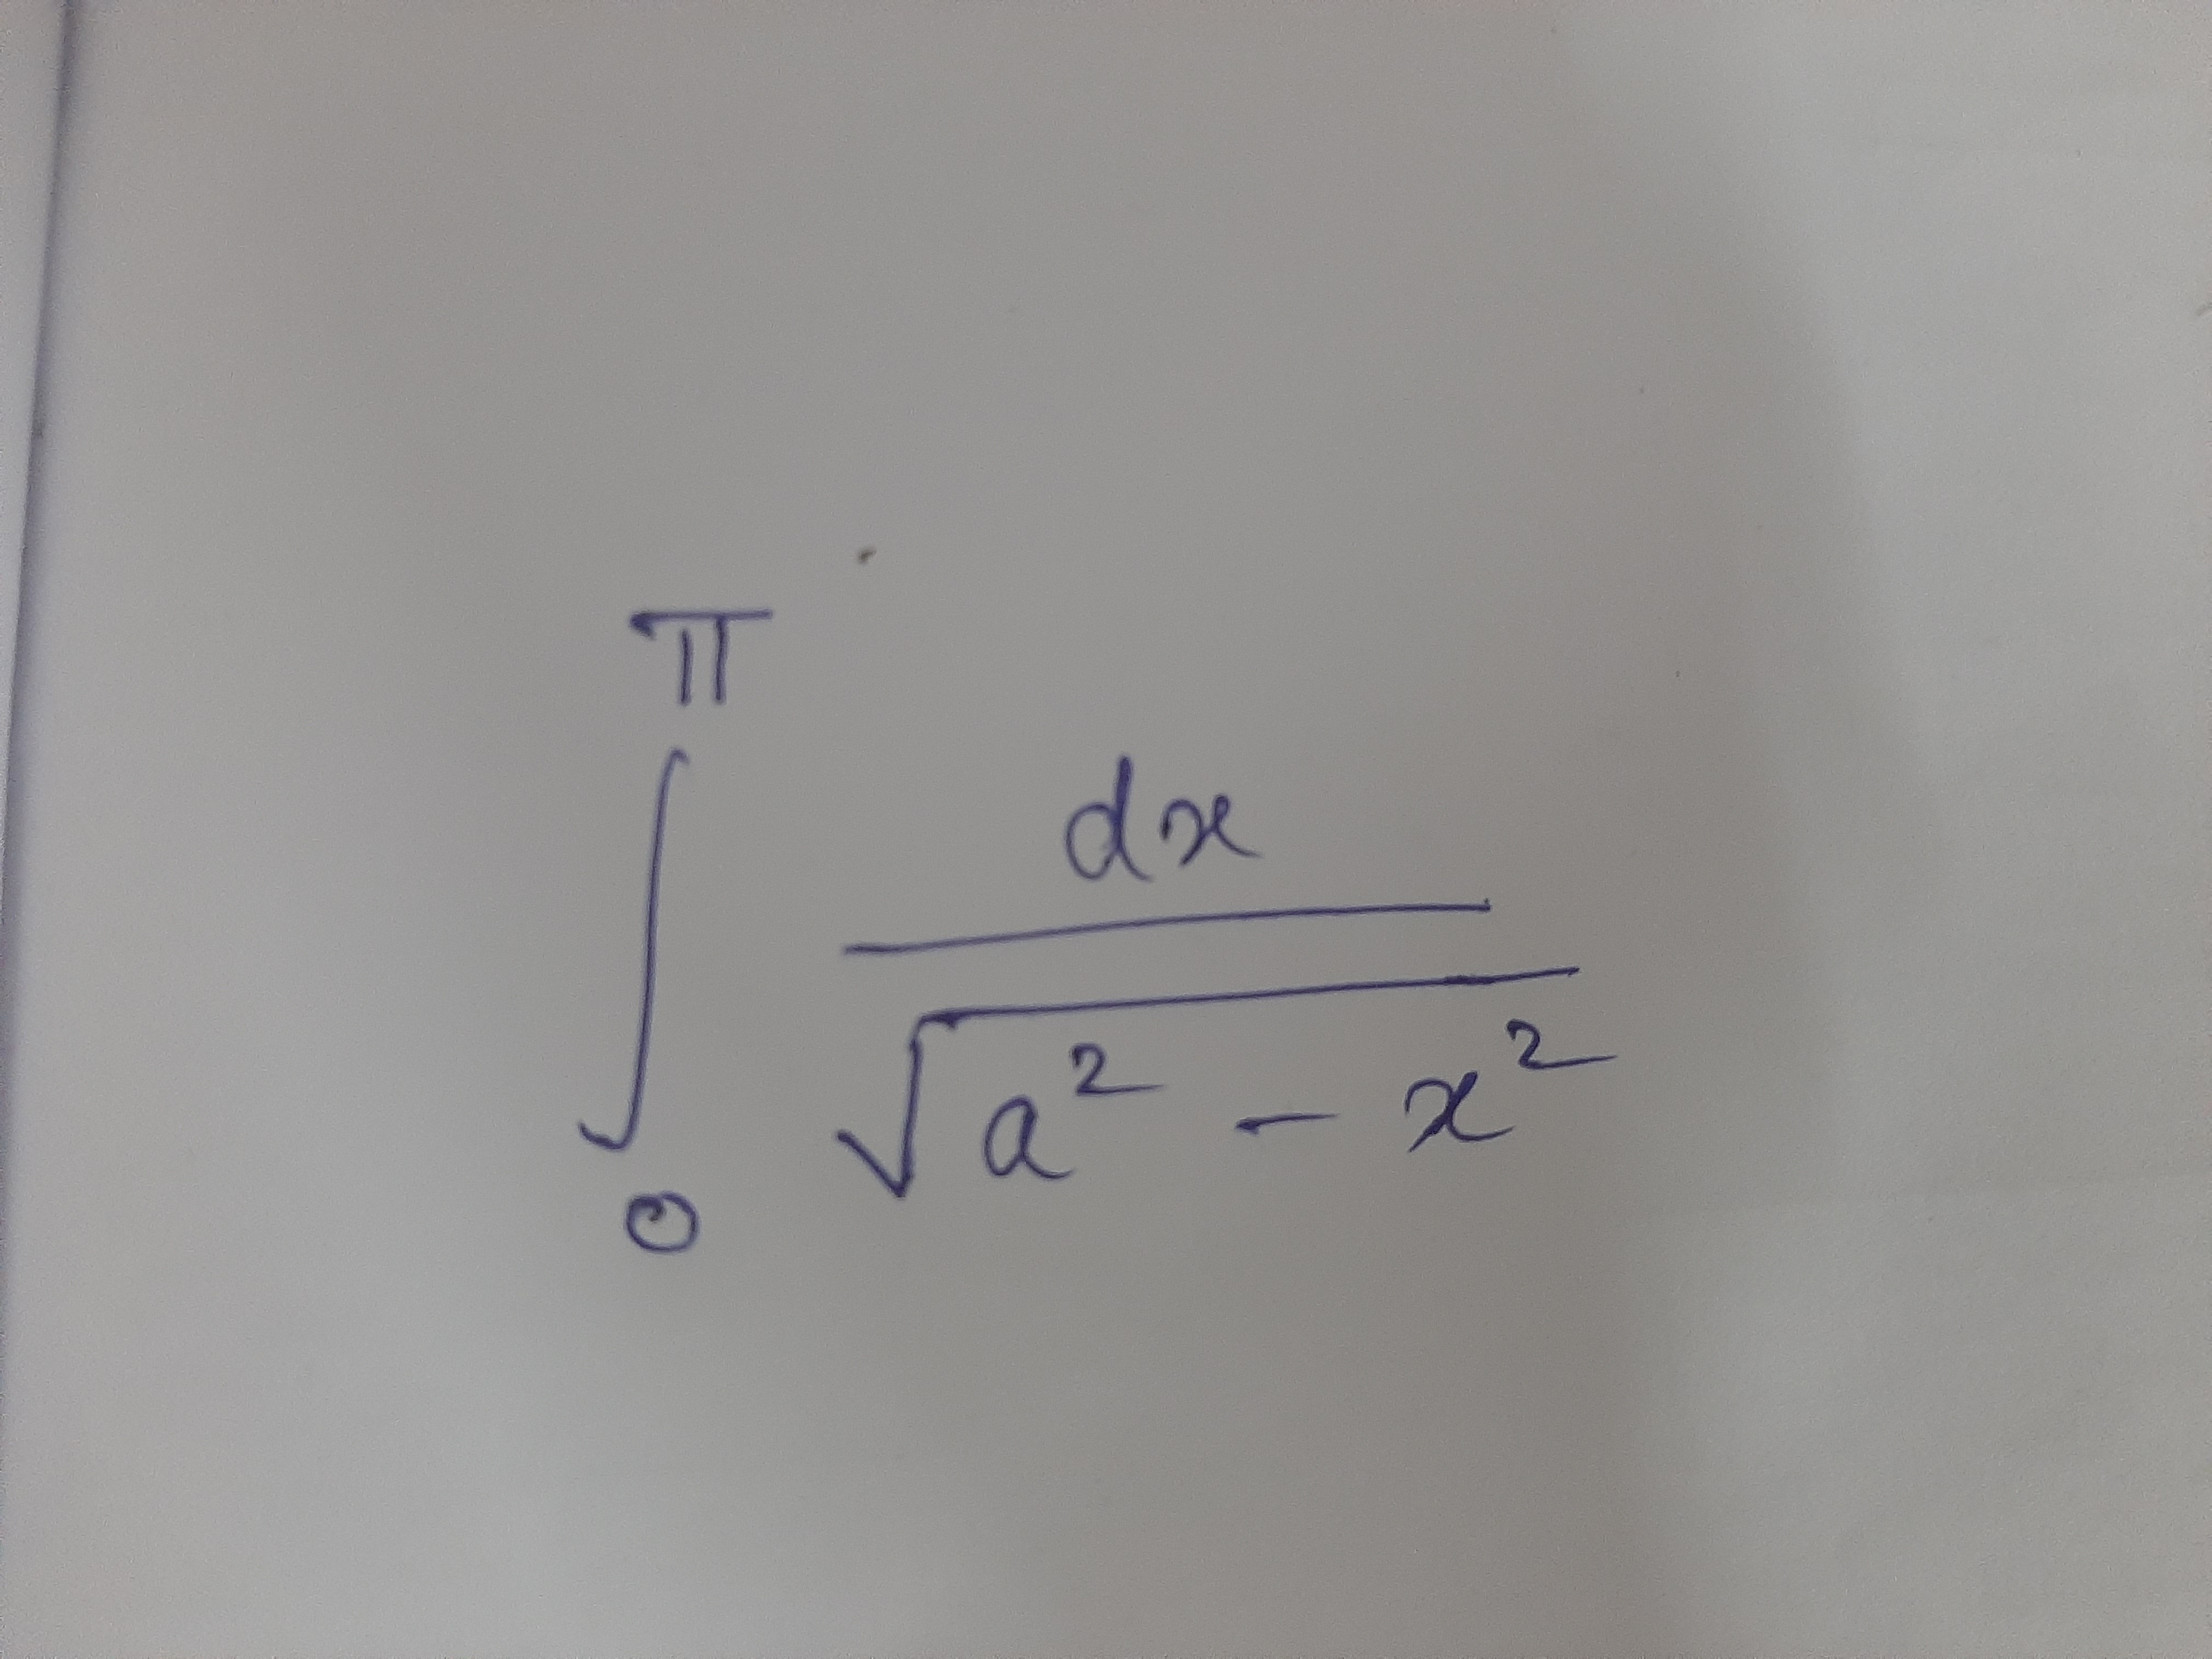 ∫₀^π dx / √(a² - x²)